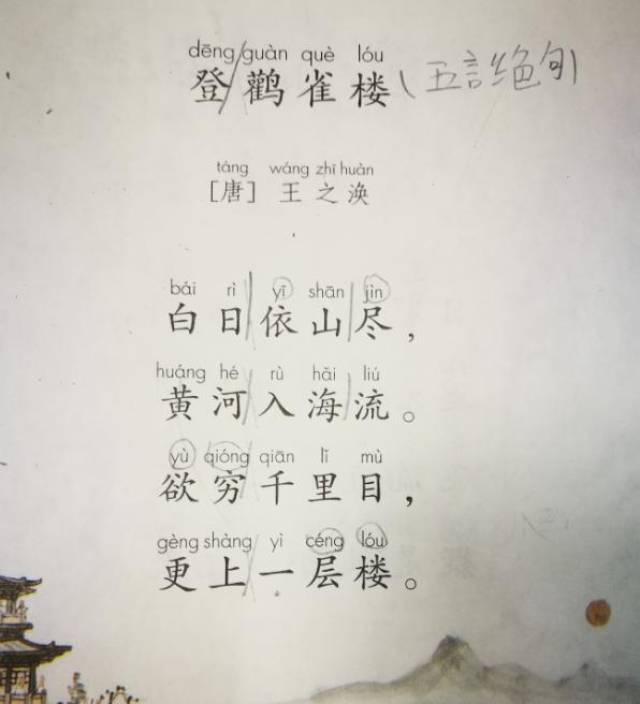 dēng guàn què lóu
登鹳雀楼(五言绝句)
táng wáng zhī huàn
[唐] 王之涣
bái rì yī shān jìn
白日依山尽，
huáng hé rù hǎi liú
黄河入海流。
yù qióng qiān lǐ mù
欲穷千里目，
gèng shàng yì céng lóu
更上一层楼。